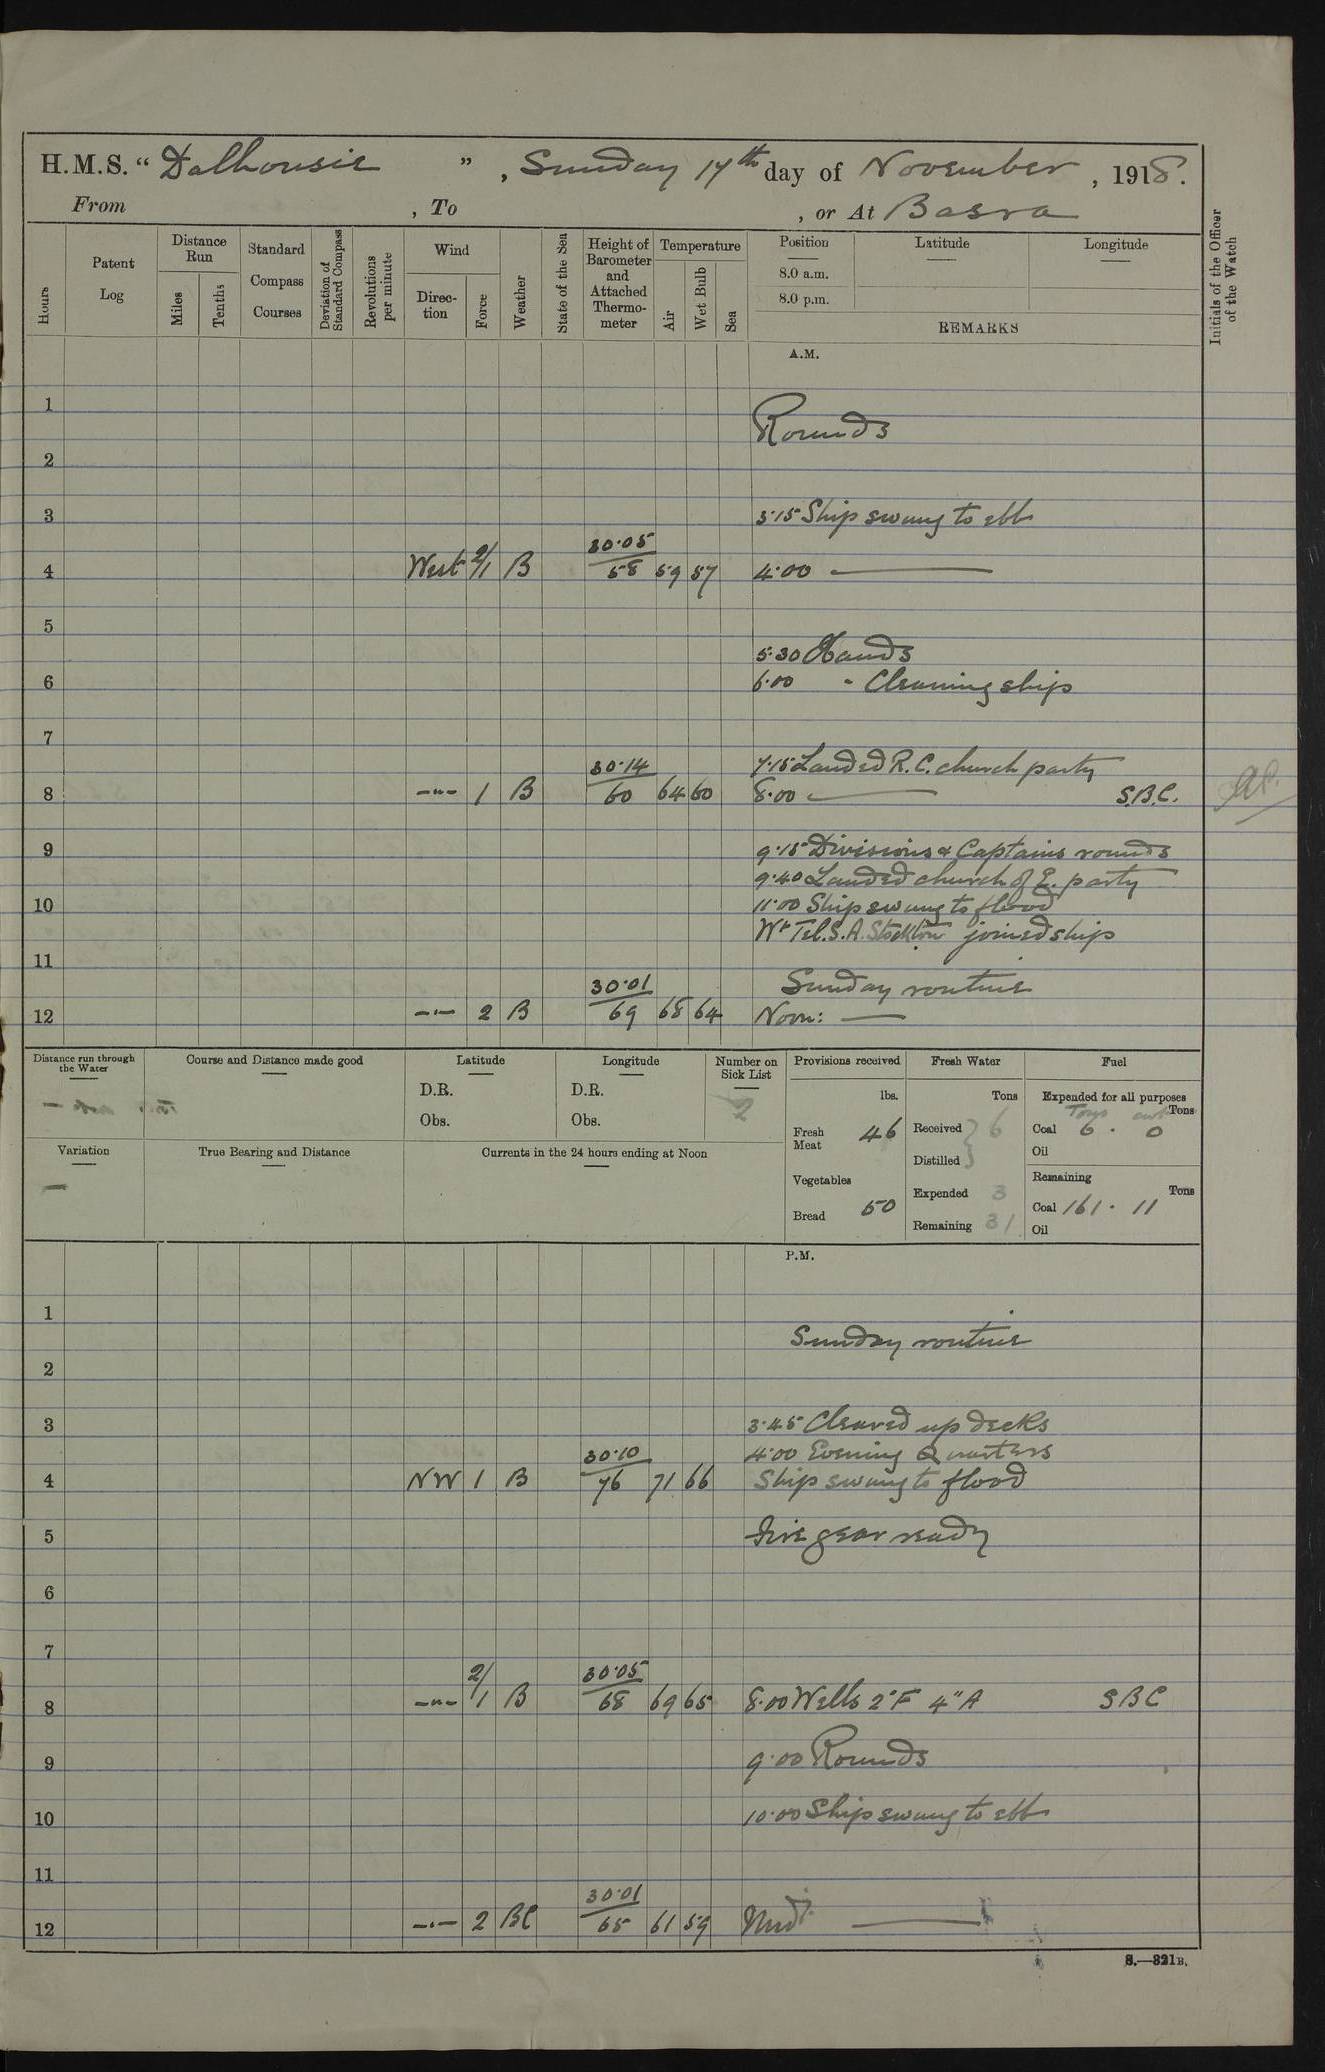 H.M.S. “ Dalhousie ” , Sunday 17th day of November , 1918.
From , To , or At Basra
Hours
Patent Log
Distance Run
Miles
Tenths
Standard Compass Courses
Deviation of Standard Compass
Revolutions per minute
Wind
Direc-tion
Force
Weather
State of the Sea
Height of Barometer and Attached Thermo-meter
Temperature
Air
Wet Bulb
Sea
Position
8.0 a.m.
8.0 p.m.
Latitude
Longitude
REMARKS
Initials of the Officer of the Watch
A.M.
1
Rounds
2
3
3.15 Ship swung to ebb
30.05
4 West 2/1 B 58 59 57 4.00 —
5
5.30 Hands
6 6.00 " Cleaning ship
7
30.14 7.15 Landed R.C. church party
8 –"– 1 B 60 64 60 8.00 — S.B.C.
9 9.15 Divisions & Captains rounds
9.40 Landed church of E. party
10 11.00 Ship swung to flood
Wt Tel. S.A. Stockton joined ship
11
30.01 Sunday routine
12 –"– 2 B 69 68 64 Noon: —
Distance run through the Water
Course and Distance made good
Latitude
D.R.
Obs.
Longitude
D.R.
Obs.
Number on Sick List
2
Variation
—
True Bearing and Distance
Currents in the 24 hours ending at Noon
Provisions received
lbs.
Fresh Meat 46
Vegetables
Bread 50
Fresh Water
Tons
Received } 6
Distilled
Expended 3
Remaining 31
Fuel
Expended for all purposes
Tons cwt Tons
Coal 6 . 0
Oil
Remaining
Tons
Coal 161 . 11
Oil
P.M.
1
Sunday routine
2
3 3.45 Cleared up decks
30.10 4.00 Evening Quarters
4 NW 1 B 76 71 66 Ship swung to flood
5 Fire gear ready
6
7
30.05
8 –"– 2/1 B 68 69 65 8.00 Wells 2"F 4"A SBC
9 9.00 Rounds
10 10.00 Ship swung to ebb
11
30.01
12 –"– 2 BC 65 61 59 Midt. —
S.—321B.